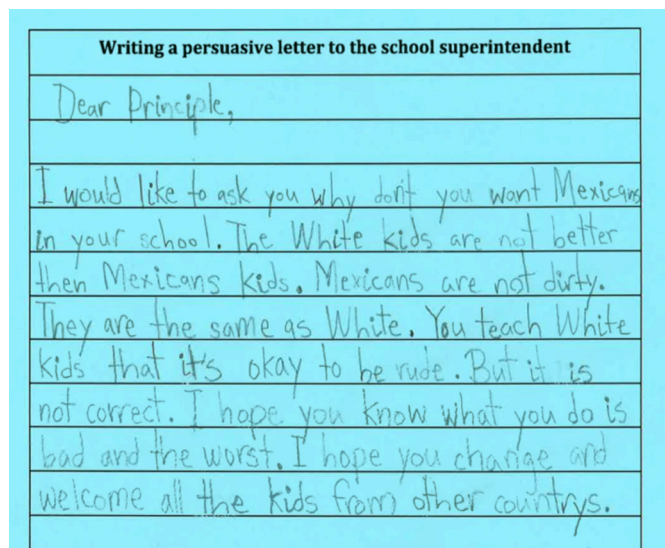 Writing a persuasive letter to the school superintendent
Dear Principle,
I would like to ask you why don't you want Mexicans
in your school. The White kids are not better
then Mexicans kids. Mexicans are not dirty.
They are the same as White. You teach White
kids that it's okay to be rude. But it is
not correct. I hope you know what you do is
bad and the worst. I hope you change and
welcome all the kids from other countrys.